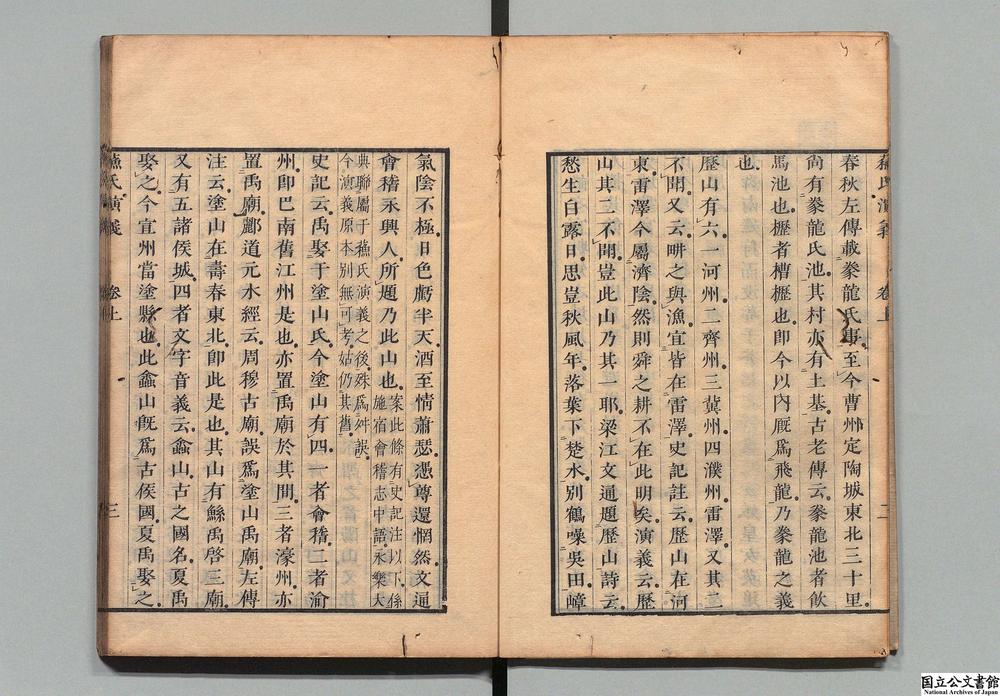 蘇氏演義 卷上 二
春秋左傳載豢龍氏事至今曹州定陶城東北三十里
尚有豢龍氏池其村亦有土基古老傳云豢龍池者飲
馬池也櫪者槽櫪也即今以內厩爲飛龍乃豢龍之義
也
歷山有六一河州二齊州三冀州四濮州雷澤又其二
不聞又云畊之與漁宜皆在雷澤史記註云歷山在河
東雷澤今屬濟陰然則舜之耕不在此明矣演義云歷
山其二不聞豈此山乃其一耶梁江文通題歷山詩云
愁生白露日思豈秋風年落葉下楚水別鶴噪吳田嶂
氣陰不極日色虧半天酒至情蕭瑟憑尊還惘然文通
會稽永興人所題乃此山也案此條有史記注以下係施宿會稽志中語永樂大
典聯屬于蘇氏演義之後殊爲舛誤今演義原本別無可考姑仍其舊
史記云禹娶于塗山氏今塗山有四一者會稽二者渝
州即巴南舊江州是也亦置禹廟於其間三者濠州亦
置禹廟酈道元水經云周穆古廟誤爲塗山禹廟左傳
注云塗山在壽春東北即此是也其山有鯀禹啓三廟
又有五諸侯城四者文字音義云嵞山古之國名夏禹
娶之今宣州當塗縣也此嵞山旣爲古侯國夏禹娶之
蘇氏演義 卷上 三
国立公文書館
National Archives of Japan